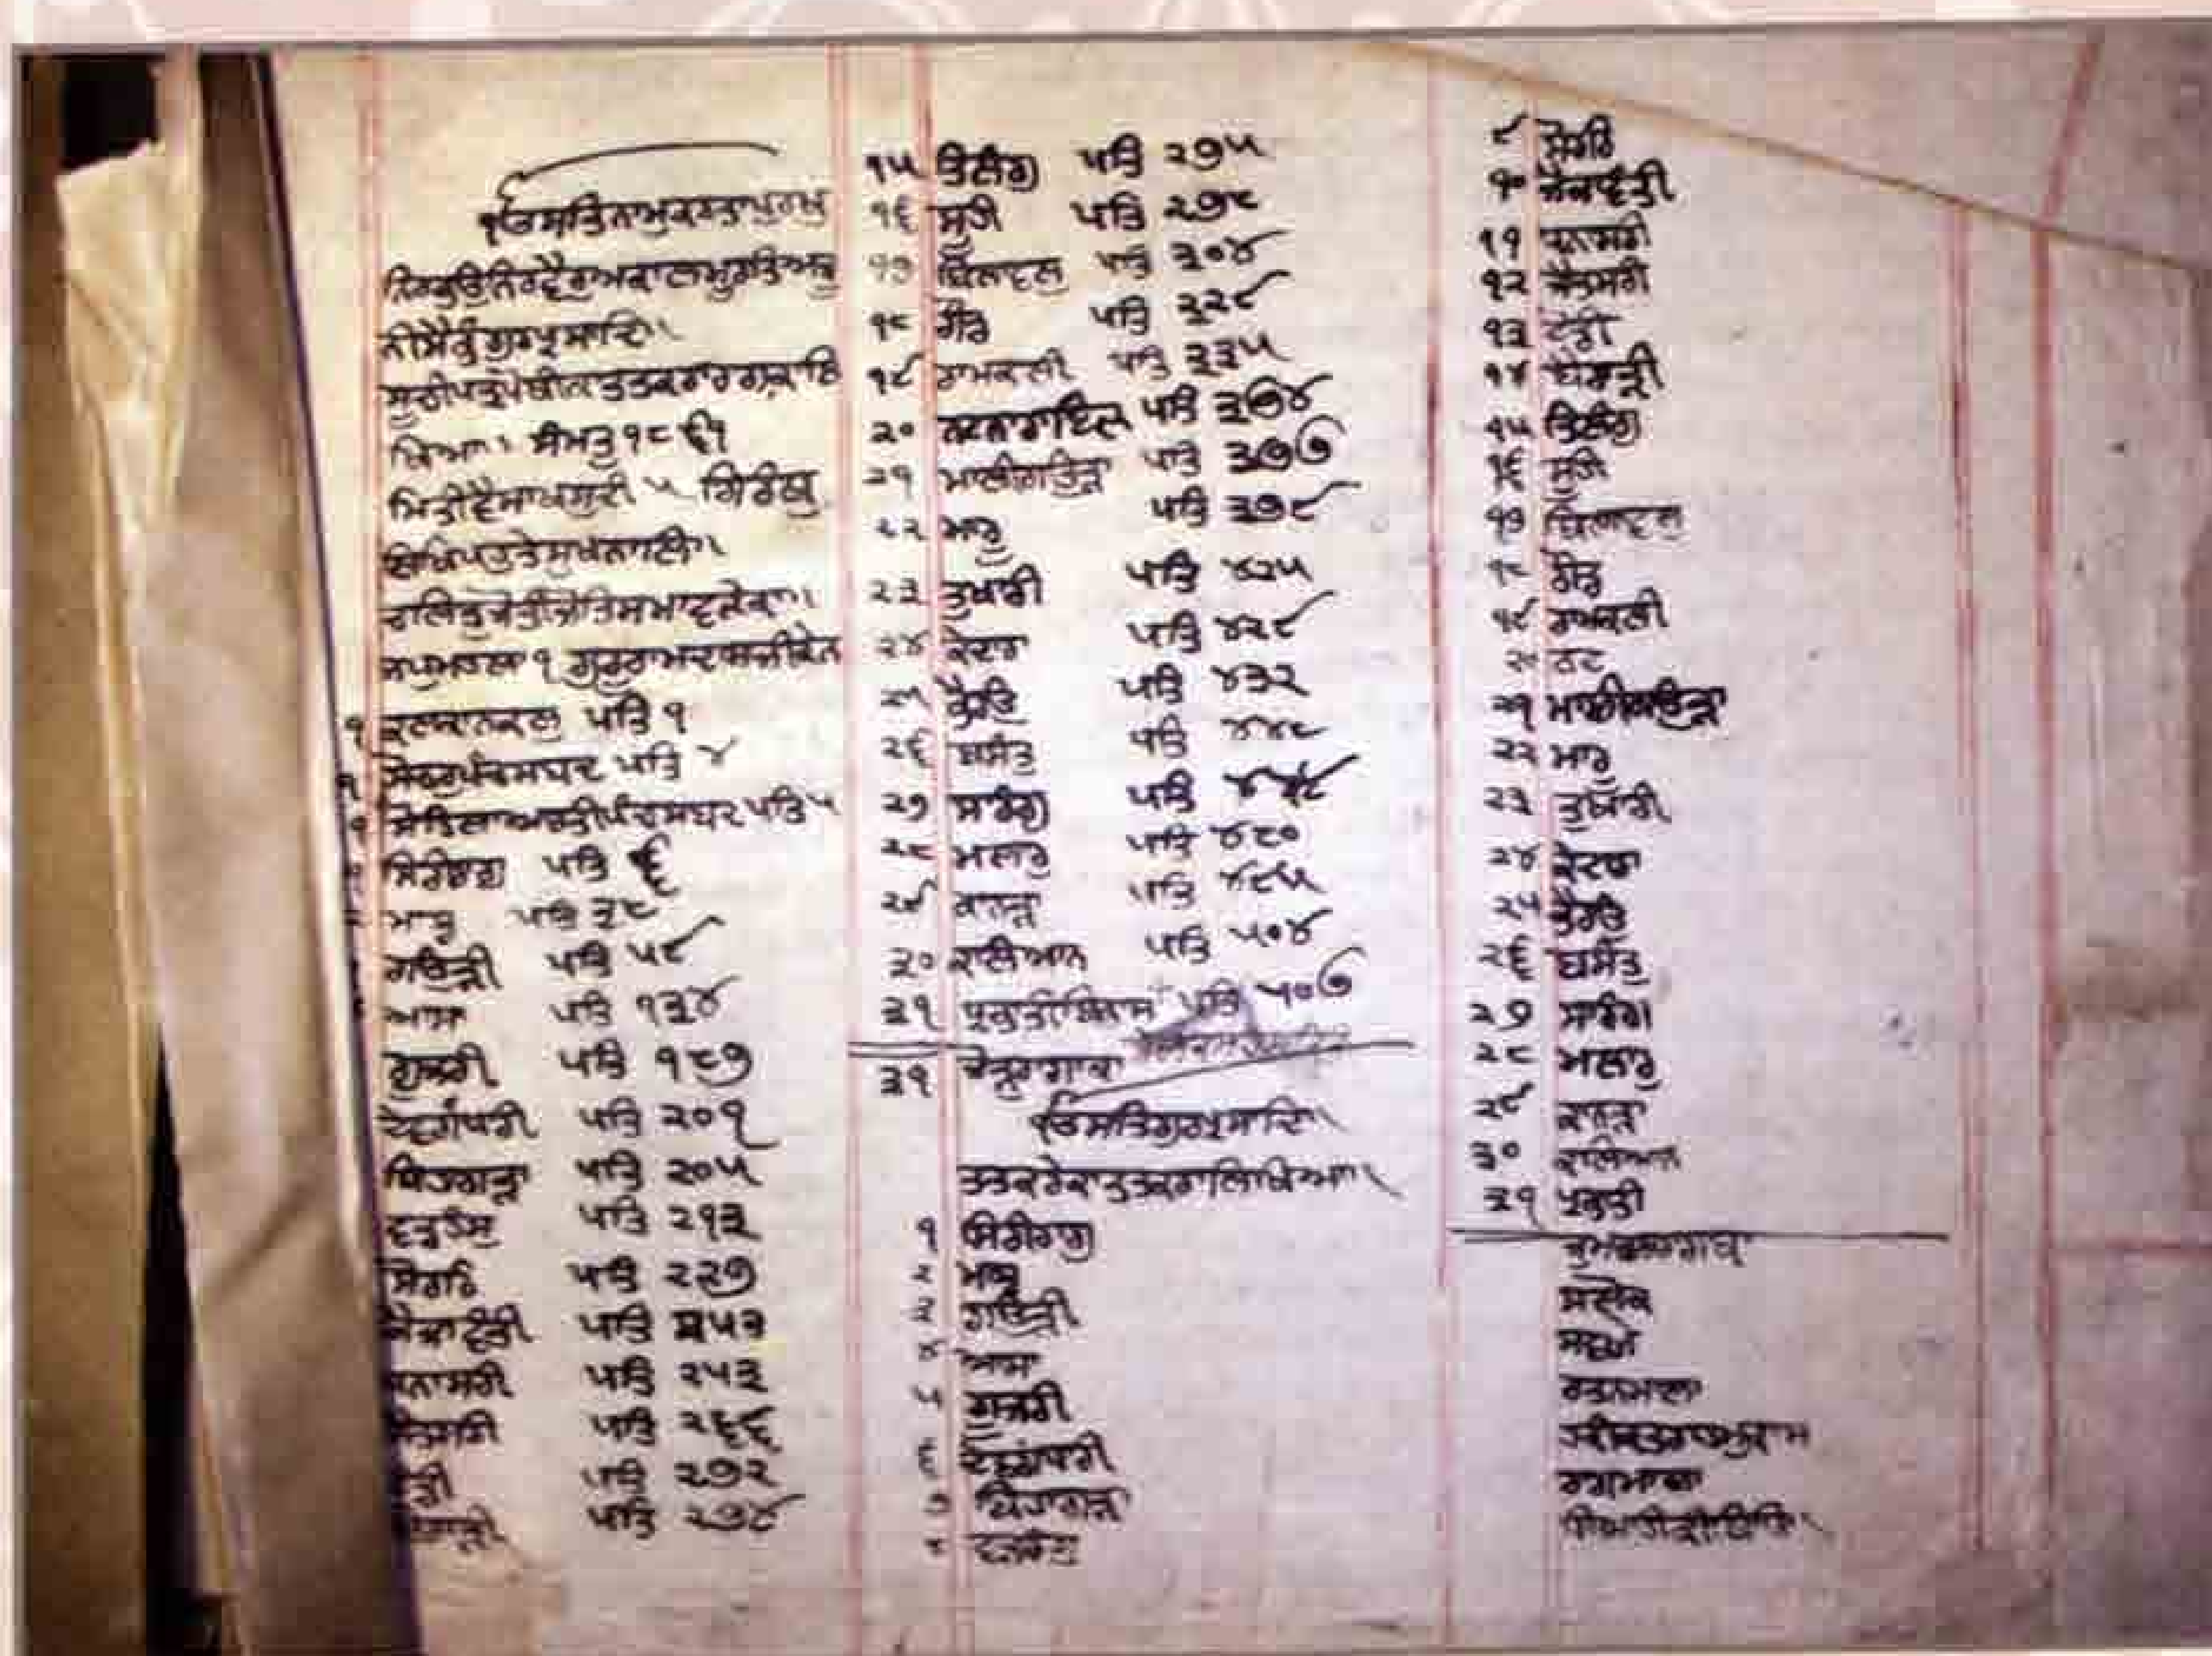 ੴਸਤਿਨਾਮੁਕਰਤਾਪੁਰਖੁ
ਨਿਰਭਉਨਿਰਵੈਰੁਅਕਾਲਮੂਰਤਿਅਜੂ
ਨੀਸੈਭੰਗੁਰਪ੍ਰਸਾਦਿ॥
ਸੂਚੀਪਤ੍ਰਪੋਥੀਕਾਤਤਕਰਾਰਾਗਾਂਕਾਲਿ
ਖਿਆ॥ ਸੰਮਤੁ ੧੮੬੧
ਮਿਤੀਵੈਸਾਖਸੁਦੀ ੫ ਗਿਰੰਥੁ
ਲਿਖਿ
੧ ਪਤਿ ੧
੧ ਸੋਦਰੁਪੰਚਸਬਦ ਪਤਿ ੪
੧ ਸੋਹਿਲਾਆਰਤੀਪੰਚਸਬਦ ਪਤਿ ੫
ਸਿਰੀਰਾਗੁ ਪਤਿ ੬
ਮਾਝੁ ਪਤਿ ੩੮
ਗਉੜੀ ਪਤਿ ੫੯
ਆਸਾ ਪਤਿ ੧੩੪
ਗੂਜਰੀ ਪਤਿ ੧੮੭
ਦੇਵਗੰਧਾਰੀ ਪਤਿ ੨੦੧
ਬਿਹਾਗੜਾ ਪਤਿ ੨੦੫
ਵਡਹੰਸੁ ਪਤਿ ੨੧੩
ਸੋਰਠਿ ਪਤਿ ੨੨੭
ਜੈਜਾਵੰਤੀ ਪਤਿ ੨੫੩
ਧਨਾਸਰੀ ਪਤਿ ੨੫੩
ਜੈਤਸਰੀ ਪਤਿ ੨੬੬
ਟੋਡੀ ਪਤਿ ੨੭੨
ਬੈਰਾੜੀ ਪਤਿ ੨੭੪
੧੫ ਤਿਲੰਗੁ ਪਤਿ ੨੭੫
੧੬ ਸੂਹੀ ਪਤਿ ੨੭੮
੧੭ ਬਿਲਾਵਲੁ ਪਤਿ ੩੦੪
੧੮ ਗੌਂਡ ਪਤਿ ੩੨੯
੧੯ ਰਾਮਕਲੀ ਪਤਿ ੩੩੫
੨੦ ਨਟਨਾਰਾਇਣ ਪਤਿ ੩੭੪
੨੧ ਮਾਲੀਗਉੜਾ ਪਤਿ ੩੭੭
੨੨ ਮਾਰੂ ਪਤਿ ੩੭੯
੨੩ ਤੁਖਾਰੀ ਪਤਿ ੪੨੫
੨੪ ਕੇਦਾਰਾ ਪਤਿ ੪੨੯
੨੫ ਭੈਰਉ ਪਤਿ ੪੩੨
੨੬ ਬਸੰਤੁ ਪਤਿ ੪੪੮
੨੭ ਸਾਰੰਗੁ ਪਤਿ
੨੮ ਮਲਾਰੁ ਪਤਿ ੪੮੦
੨੯ ਕਾਨੜਾ ਪਤਿ ੪੯੫
੩੦ ਕਲਿਆਨ ਪਤਿ ੫੦੪
੩੧ ਪ੍ਰਭਾਤੀਬਿਭਾਸ ਪਤਿ ੫੦੭
੩੧
ੴਸਤਿਗੁਰਪ੍ਰਸਾਦਿ॥
ਤਤਕਰੇਕਾਤਤਕਰਾਲਿਖਿਆ॥
੧ ਸਿਰੀਰਾਗੁ
੨ ਮਾਝੁ
੩ ਗਉੜੀ
੪ ਆਸਾ
੫ ਗੂਜਰੀ
੬ ਦੇਵਗੰਧਾਰੀ
੭ ਬਿਹਾਗੜਾ
੮ ਵਡਹੰਸੁ
੯ ਸੋਰਠਿ
੧੦ ਜੈਜਾਵੰਤੀ
੧੧ ਧਨਾਸਰੀ
੧੨ ਜੈਤਸਰੀ
੧੩ ਟੋਡੀ
੧੪ ਬੈਰਾੜੀ
੧੫ ਤਿਲੰਗੁ
੧੬ ਸੂਹੀ
੧੭ ਬਿਲਾਵਲੁ
੧੮ ਗੌਂਡੁ
੧੯ ਰਾਮਕਲੀ
੨੦ ਨਟ
੨੧ ਮਾਲੀਗਉੜਾ
੨੨ ਮਾਰੂ
੨੩ ਤੁਖਾਰੀ
੨੪ ਕੇਦਾਰਾ
੨੫ ਭੈਰਉ
੨੬ ਬਸੰਤੁ
੨੭ ਸਾਰੰਗ
੨੮ ਮਲਾਰੁ
੨੯ ਕਾਨੜਾ
੩੦ ਕਲਿਆਨ
੩੧ ਪ੍ਰਭਾਤੀ
ਸਲੋਕ
ਸਵਯੇ
ਰਤਨਮਾਲਾ
ਰਾਗਮਾਲਾ
ਸਿਆਹੀਕੀਬਿਧਿ॥